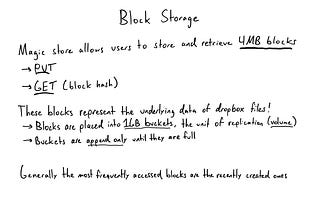 Block Storage
Magic store allows users to store and retrieve 4MB blocks
→ PUT
→ GET (block hash)
These blocks represent the underlying data of dropbox files!
→ Blocks are placed into 1GB buckets, the unit of replication (volume)
→ Buckets are append only until they are full
Generally the most frequently accessed blocks are the recently created ones